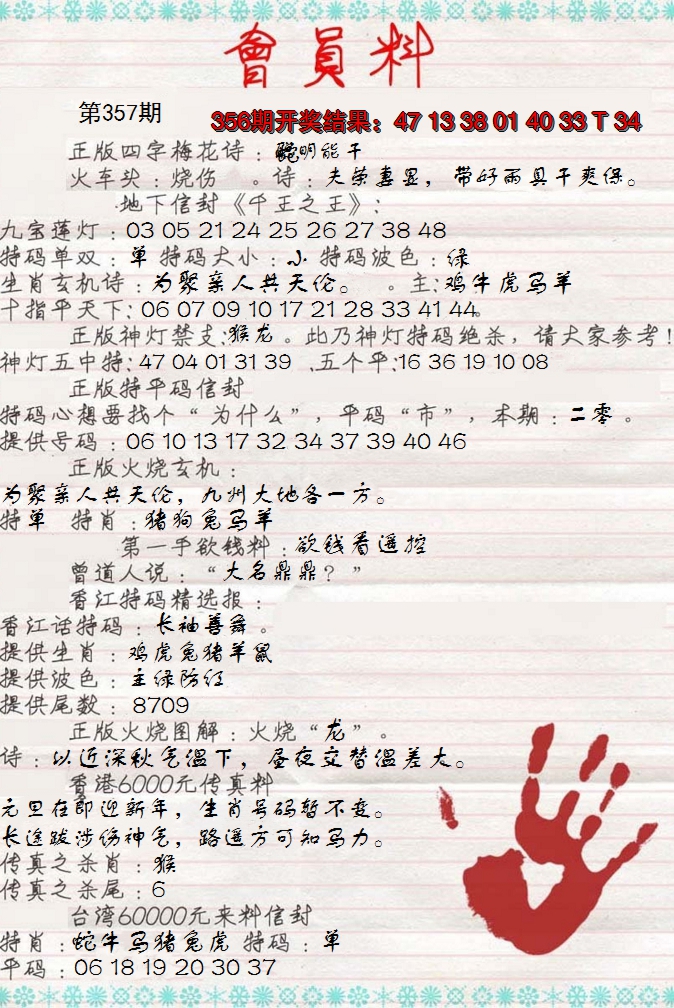 會員料
第357期
356期开奖结果：47 13 38 01 40 33 T 34
正版四字梅花诗：聪明能干
火车头：烧伤 。诗：夫荣妻显，带好雨具干爽保。
地下信封《千王之王》：
九宝莲灯：03 05 21 24 25 26 27 38 48
特码单双：单 特码大小：小 特码波色：绿
生肖玄机诗：为聚亲人共天伦。 。主：鸡牛虎马羊
十指平天下：06 07 09 10 17 21 28 33 41 44。
正版神灯禁支：猴龙。此乃神灯特码绝杀，请大家参考！
神灯五中特：47 04 01 31 39 、五个平：16 36 19 10 08
正版特平码信封
特码心想要找个“为什么”，平码“市”，本期：二零。
提供号码：06 10 13 17 32 34 37 39 40 46
正版火烧玄机：
为聚亲人共天伦，九州大地各一方。
特单 特肖：猪狗兔马羊
第一手欲钱料：欲钱看遥控
曾道人说：“大名鼎鼎？”
香江特码精选报：
香江话特码：长袖善舞。
提供生肖：鸡虎兔猪羊鼠
提供波色：主绿防红
提供尾数：8709
正版火烧图解：火烧“龙”。
诗：以近深秋气温下，昼夜交替温差大。
香港6000元传真料
元旦在即迎新年，生肖号码暂不变。
长途跋涉伤神气，路遥方可知马力。
传真之杀肖：猴
传真之杀尾：6
台湾60000元来料信封
特肖：蛇牛马猪兔虎 特码：单
平码：06 18 19 20 30 37